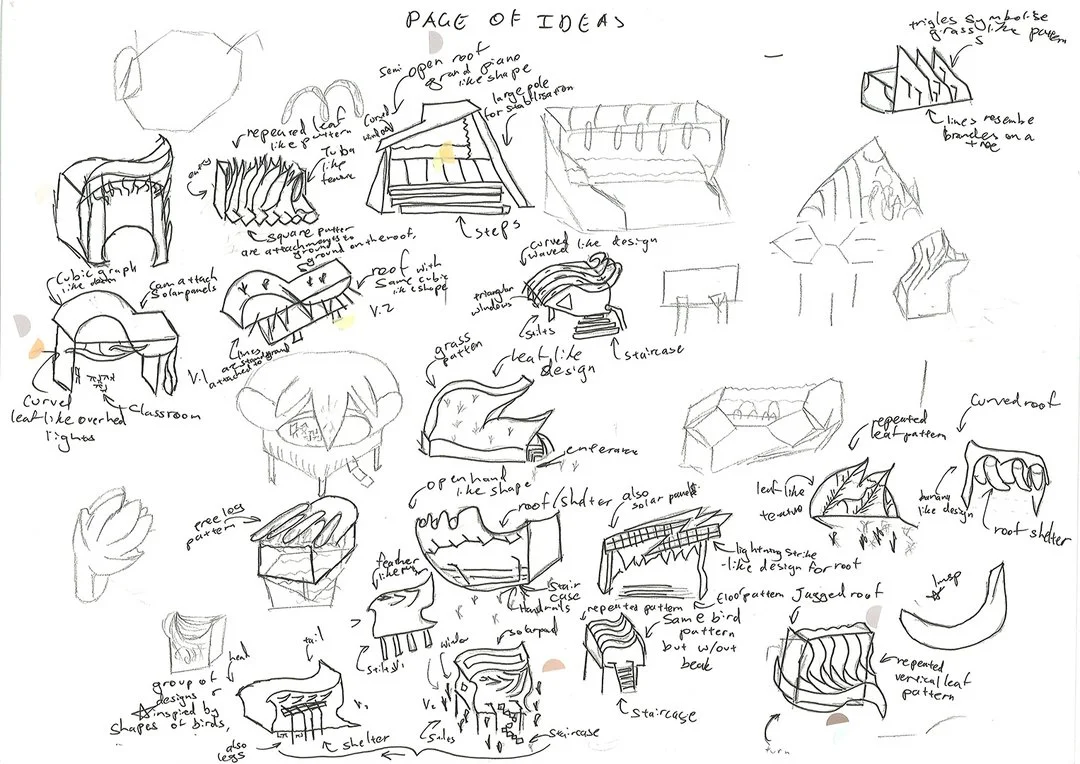 PAGE OF IDEAS
symbolise
grass like pattern
lines resembe
branches on a
tree
semi open roof
grand piano
like shape
large pole
for stabilisation
curved
window
steps
repeated leaf
like pattern
Tuba
like
entry
square
ground on the roof,
curved like design
waved
triangular
windows
stilts
staircase
Cubic graph
can attach
solar panels
roof with
same cubic
like shape
V.2
lines
attached to
V.1
Curved
leaf like overhed
lights
Classroom
grass
patten
leaf like
design
repeated
leaf pattern
leaf like
curved roof
banana
like design
roof shelter
tree log
pattern
open hand
like shape
roof/shelter
also
solar panels
lightning strike
-like design for roof
stair
case
Handrails
feather
like
stilts
repeated pattern
Same bird
pattern
but w/out
beak
staircase
Jagged roof
repeated
vertical leaf
pattern
turn
Insp
group of
designs
inspired by
shapes of birds,
head
tail
also
legs
shelter
window
stilts
staircase